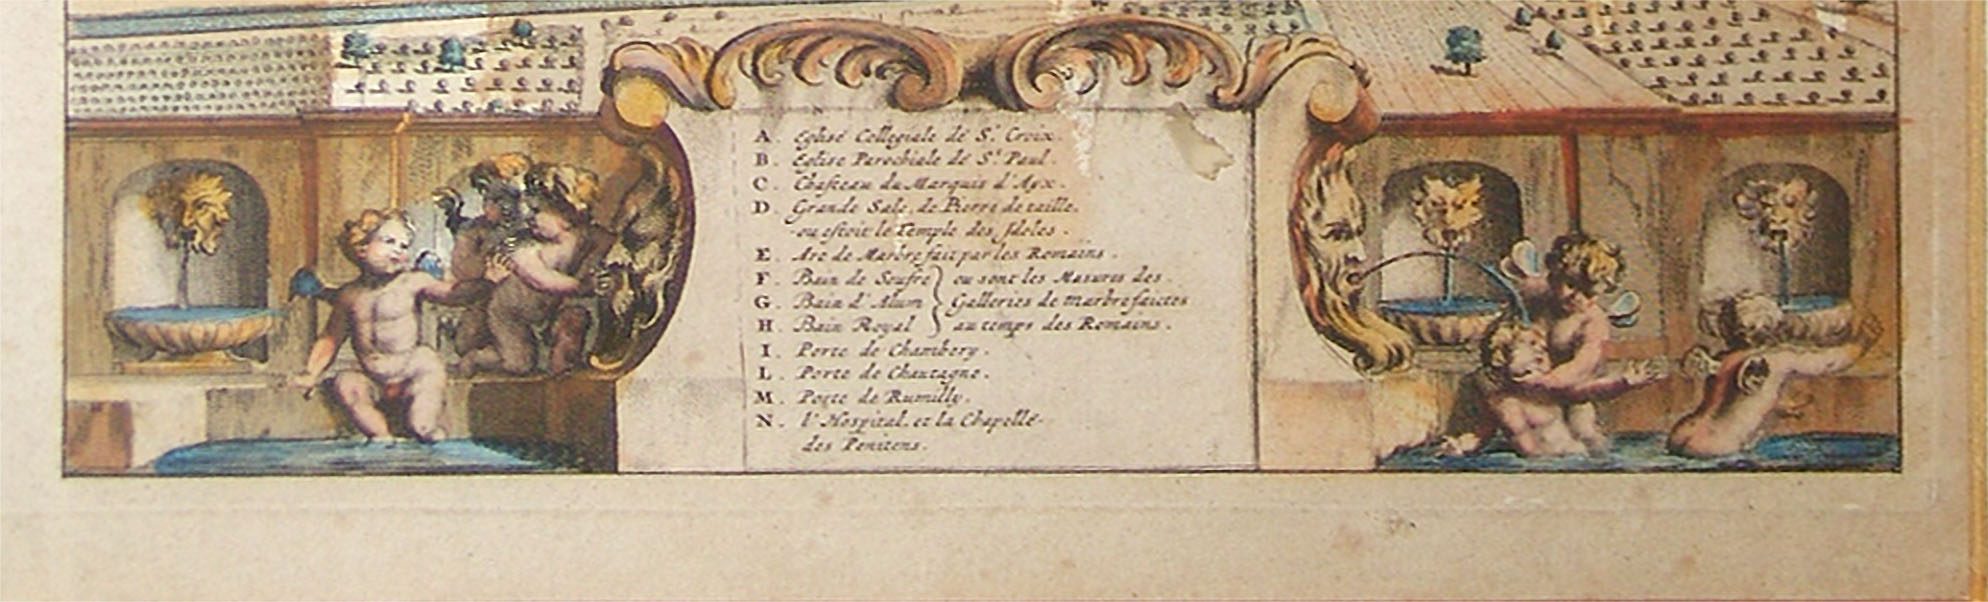 A. Eglise Collegiale de St. Croix.
B. Eglise Parochiale de St. Paul.
C. Chasteau du Marquis d'Ayx.
D. Grande Sale, de Pierre de taille.
ou estoit le Temple des Idoles.
E. Arc de Marbre fait par les Romains.
F. Bain de Soufre } ou sont les Masures des
G. Bain d'Alum } Galleries de marbre faictes
H. Bain Royal } au temps des Romains.
I. Porte de Chambery.
L. Porte de Chautagne.
M. Porte de Rumilly.
N. l'Hospital, et la Chapelle
des Penitens.